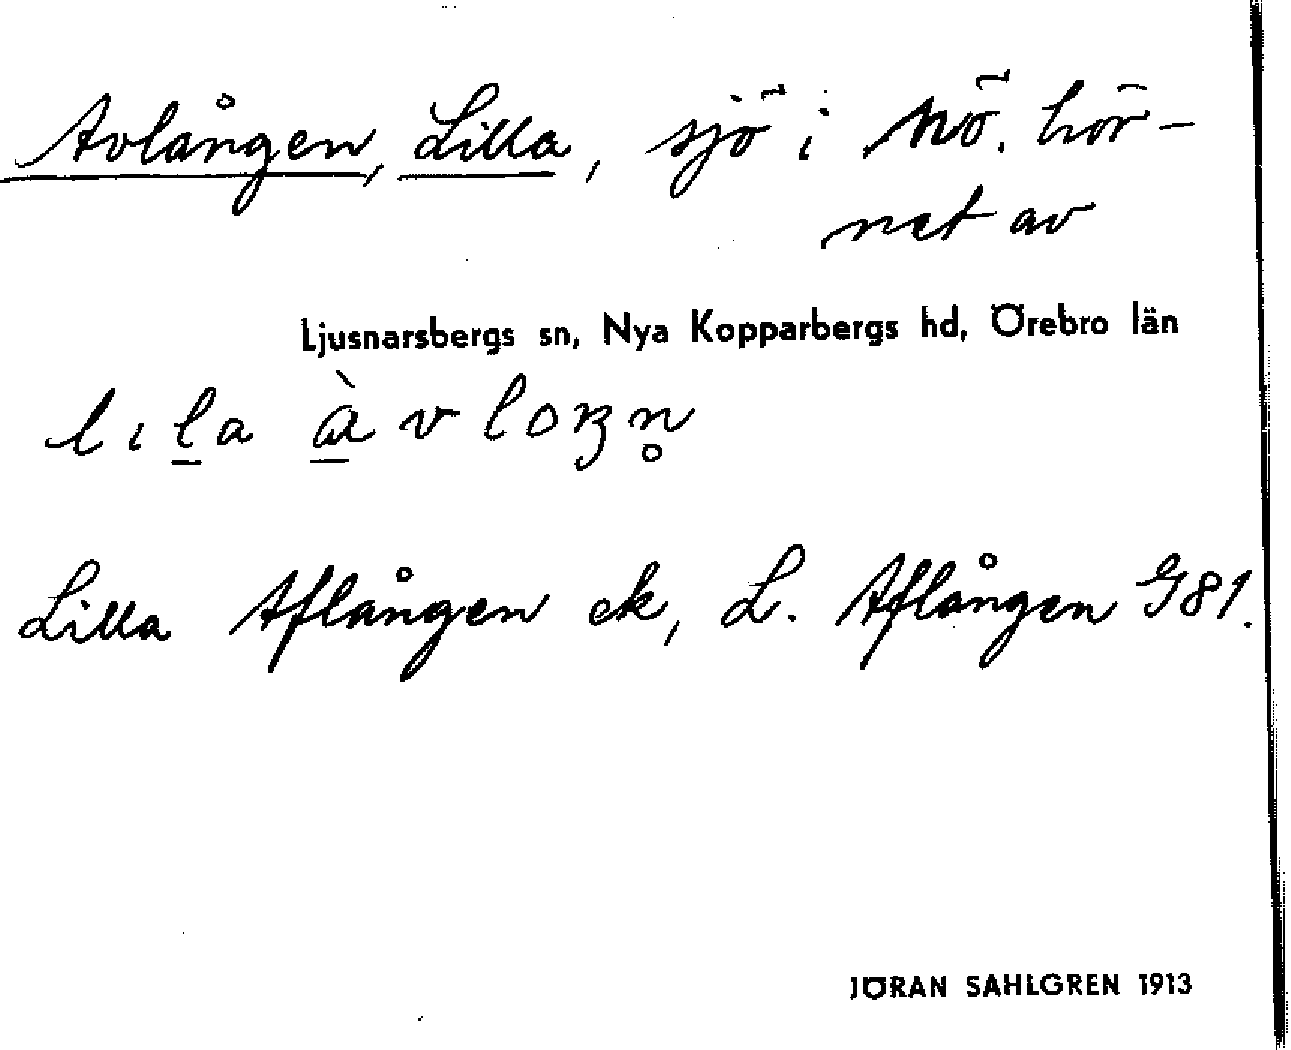 Avlången, Lilla, sjö i nö. hör-
net av
Ljusnarsbergs sn, Nya Kopparbergs hd, Örebro län
lıl̲a ὰ̲vlɔŋn̥
Lilla Aflången ek, L. Aflången G81.
JÖRAN SAHLGREN 1913